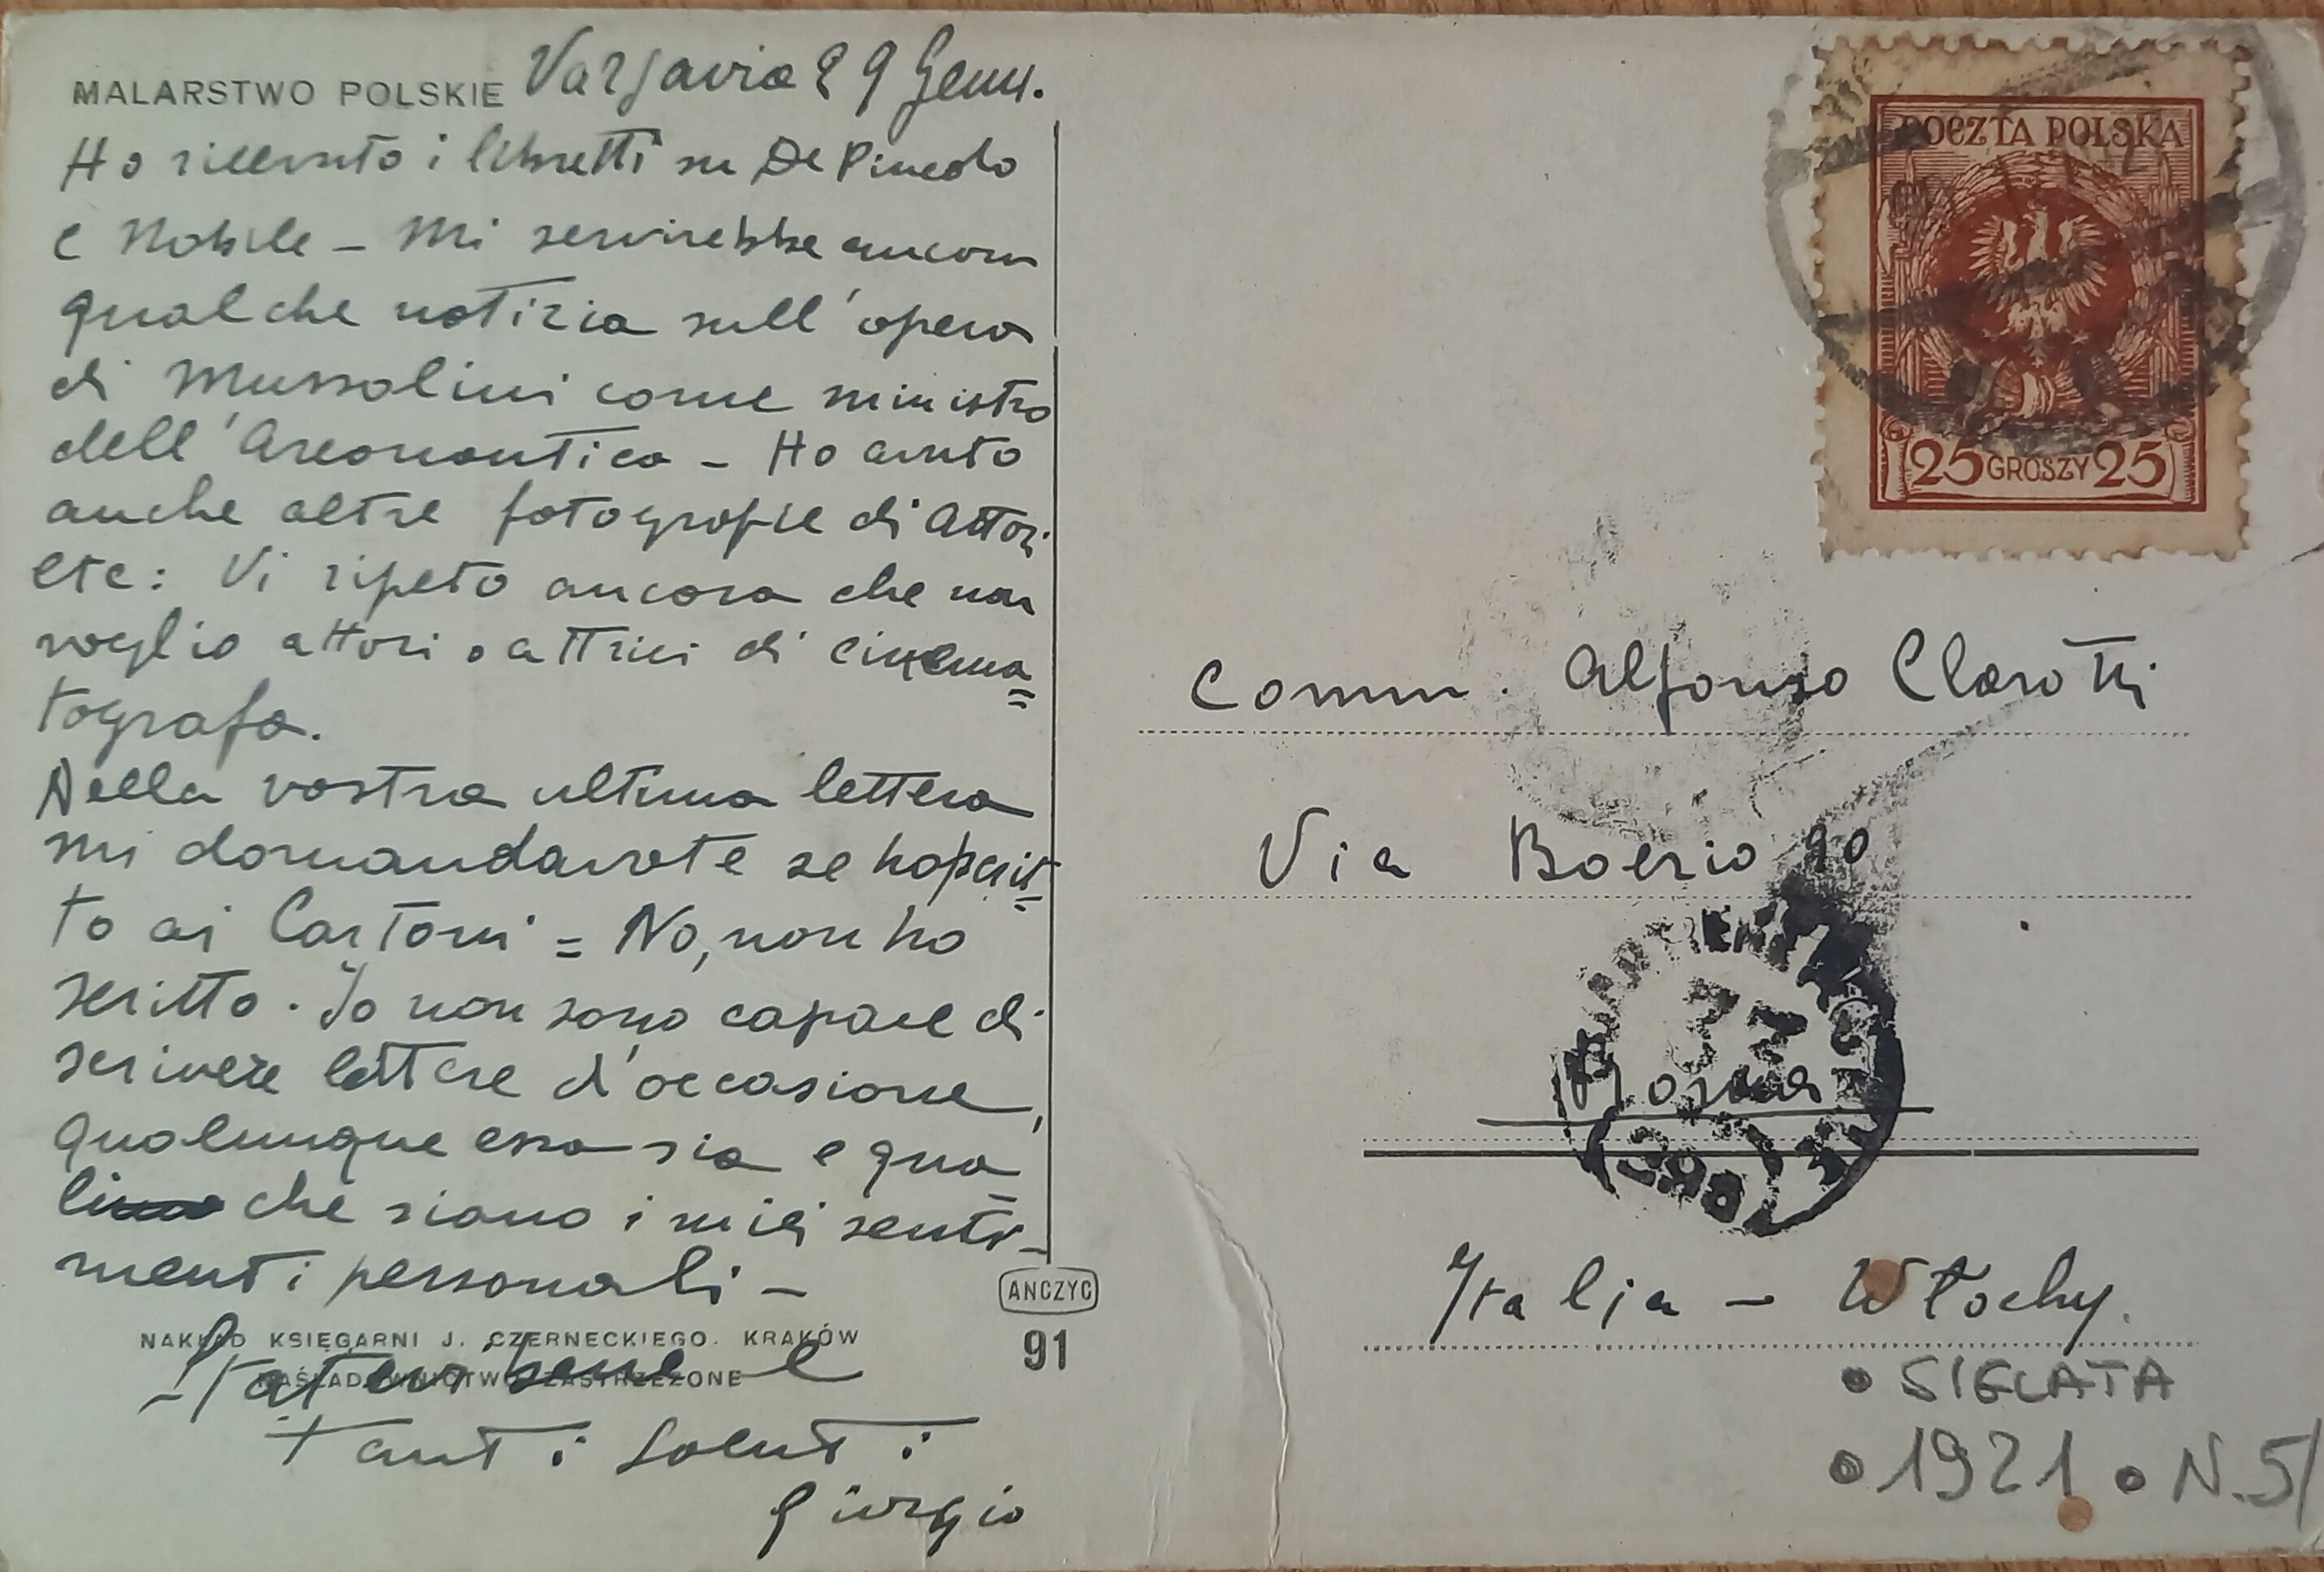 MALARSTWO POLSKIE Varsavia 29 Genn.
Ho ricevuto i libretti su De Pinedo
e Nobile - Mi servirebbe ancora
qualche notizia sull'opera
di Mussolini come ministro
dell'Areonautica - Ho avuto
anche altre fotografie di attori
etc: Vi ripeto ancora che non
voglio attori o attrici di cinema=
tografo.
Nella vostra ultima lettera
mi domandavate se ho scrit=
to ai Cartoni = No, non ho
scritto. Io non sono capace di
scrivere lettere d'occasione,
qualunque essa sia e qua=
li che siano i miei senti-
menti personali -
NAKŁAD KSIĘGARNI J. CZERNECKIEGO. KRAKÓW
NAŚLADOWNICTWO ZASTRZEŻONE
- State bene e
tanti saluti
Giorgio
ANCZYC
91
POCZTA POLSKA
25 GROSZY 25
Comm. Alfonso Clarotti
Via Boezio 90
Roma
Italia - Włochy.
• SIGLATA
• 1921 • N. 5/